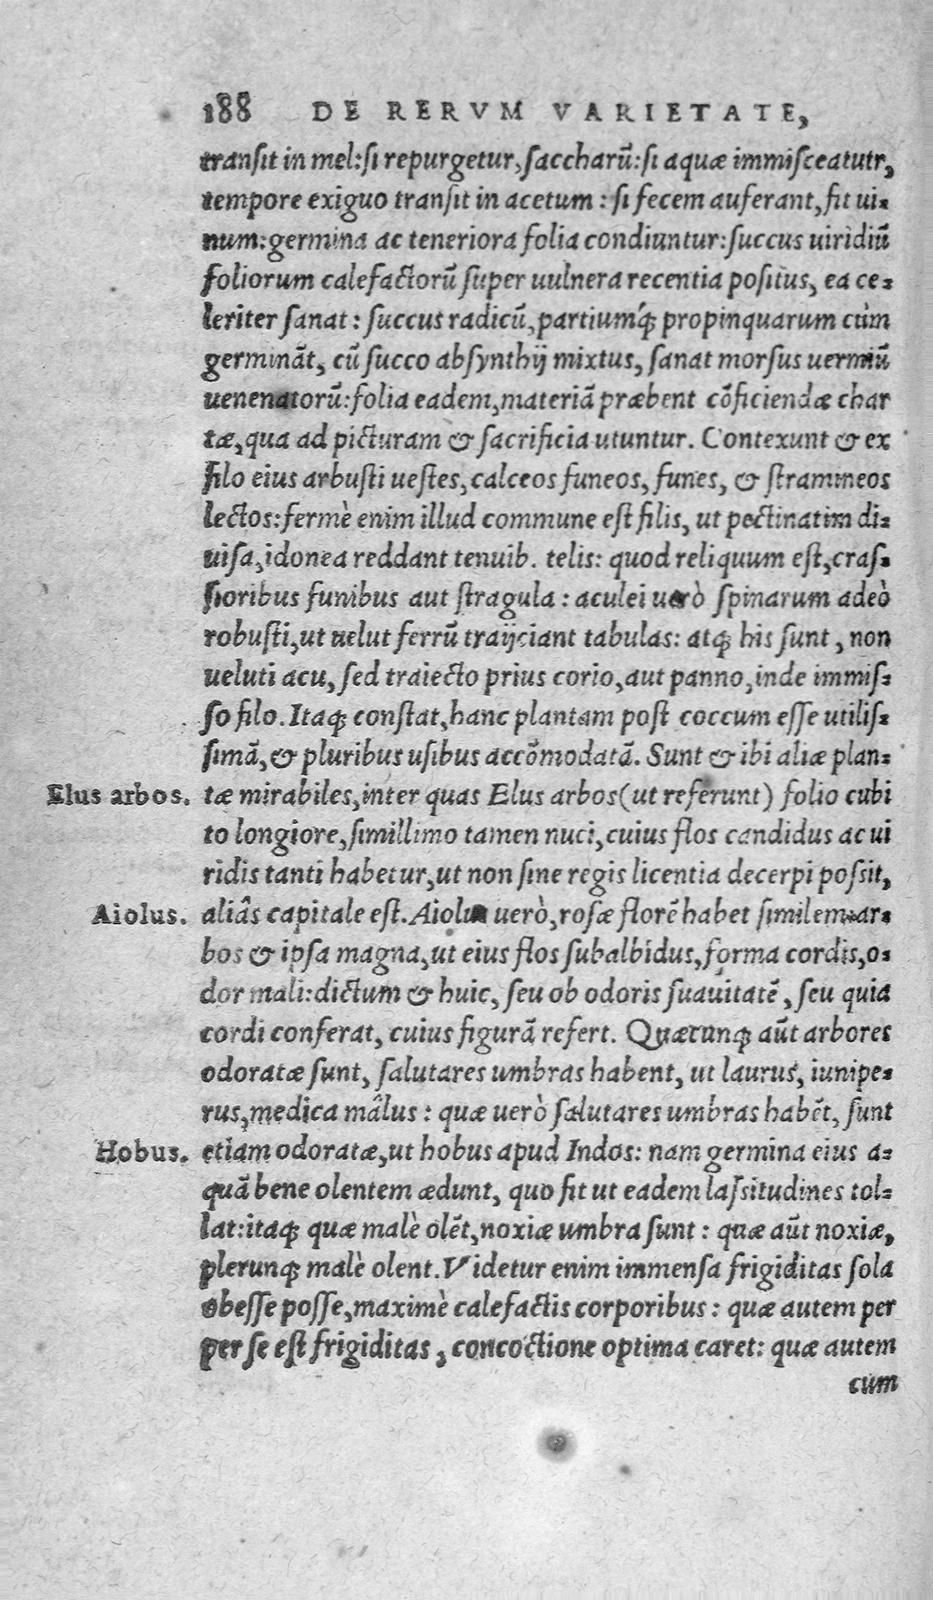 188 DE RERVM VARIETATE,
transit in mel: si repurgetur, saccharũ: si aquæ immisceatutr,
tempore exiguo transit in acetum: si fecem auferant, fit ui-
num: germina ac teneriora folia condiuntur: succus uiridiũ
foliorum calefactorũ super uulnera recentia positus, ea ce-
leriter sanat: succus radicũ, partiumq́; propinquarum cùm
germinãt, cũ succo absynthij mixtus, sanat morsus uermiũ
uenenatorũ: folia eadem, materiã præbent cõficiendæ char
tæ, qua ad picturam & sacrificia utuntur. Contexunt & ex
filo eius arbusti uestes, calceos funeos, funes, & stramineos
lectos: fermè enim illud commune est filis, ut pectinatim di-
uisa, idonea reddant tenuib. telis: quod reliquum est, cras-
sioribus funibus aut stragula: aculei uerò spinarum adeò
robusti, ut uelut ferrũ traijciant tabulas: atq; his sunt, non
ueluti acu, sed traiecto prius corio, aut panno, inde immis-
so filo. Itaq; constat, hanc plantam post coccum esse utilis-
simã, & pluribus usibus accõmodatã. Sunt & ibi aliæ plan-
Elus arbos. tæ mirabiles, inter quas Elus arbos (ut referunt) folio cubi
to longiore, simillimo tamen nuci, cuius flos candidus ac ui
ridis tanti habetur, ut non sine regis licentia decerpi possit,
Aiolus. aliâs capitale est. Aiolus uerò, rosæ florẽ habet similem ar-
bos & ipsa magna, ut eius flos subalbidus, forma cordis, o-
dor mali: dictum & huic, seu ob odoris suauitatẽ, seu quia
cordi conferat, cuius figurã refert. Quæcunq; aũt arbores
odoratæ sunt, salutares umbras habent, ut laurus, iunipe-
rus, medica mâlus: quæ uerò salutares umbras habẽt, sunt
Hobus. etiam odoratæ, ut hobus apud Indos: nam germina eius a-
quã bene olentem ædunt, quo fit ut eadem lassitudines tol-
lat: itaq; quæ malè olẽt, noxiæ umbra sunt: quæ aũt noxiæ,
plerunq; malè olent. Videtur enim immensa frigiditas sola
obesse posse, maximè calefactis corporibus: quæ autem per
per se est frigiditas, concoctione optima caret: quæ autem
cum